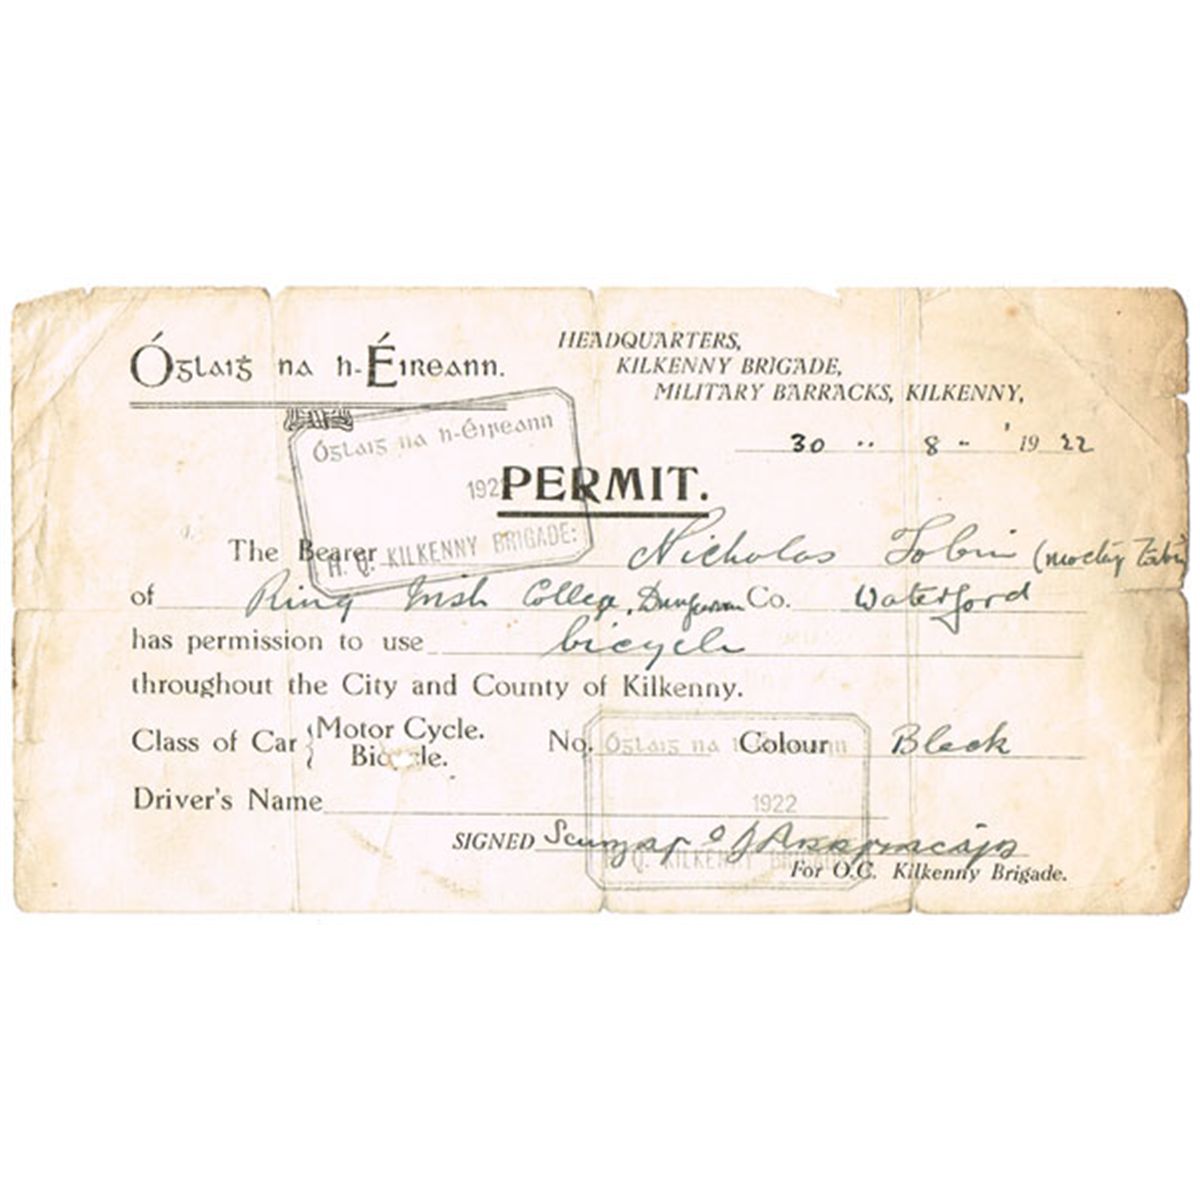 Óglaiġ na h-Éireann.
HEADQUARTERS,
KILKENNY BRIGADE,
MILITARY BARRACKS, KILKENNY,
30 .. 8 - ' 1922
Óglaiġ na h-Éireann
1922
H. Q. KILKENNY BRIGADE:
PERMIT.
The Bearer Nicholas Tobin (
of Ring Irish College, Dungarvan Co. Waterford
has permission to use bicycle
throughout the City and County of Kilkenny.
Class of Car { Motor Cycle.
Bicycle.
No. Colour Black
Óglaiġ na h-Éireann
1922
H. Q. KILKENNY BRIGADE
Driver's Name
SIGNED
For O.C. Kilkenny Brigade.